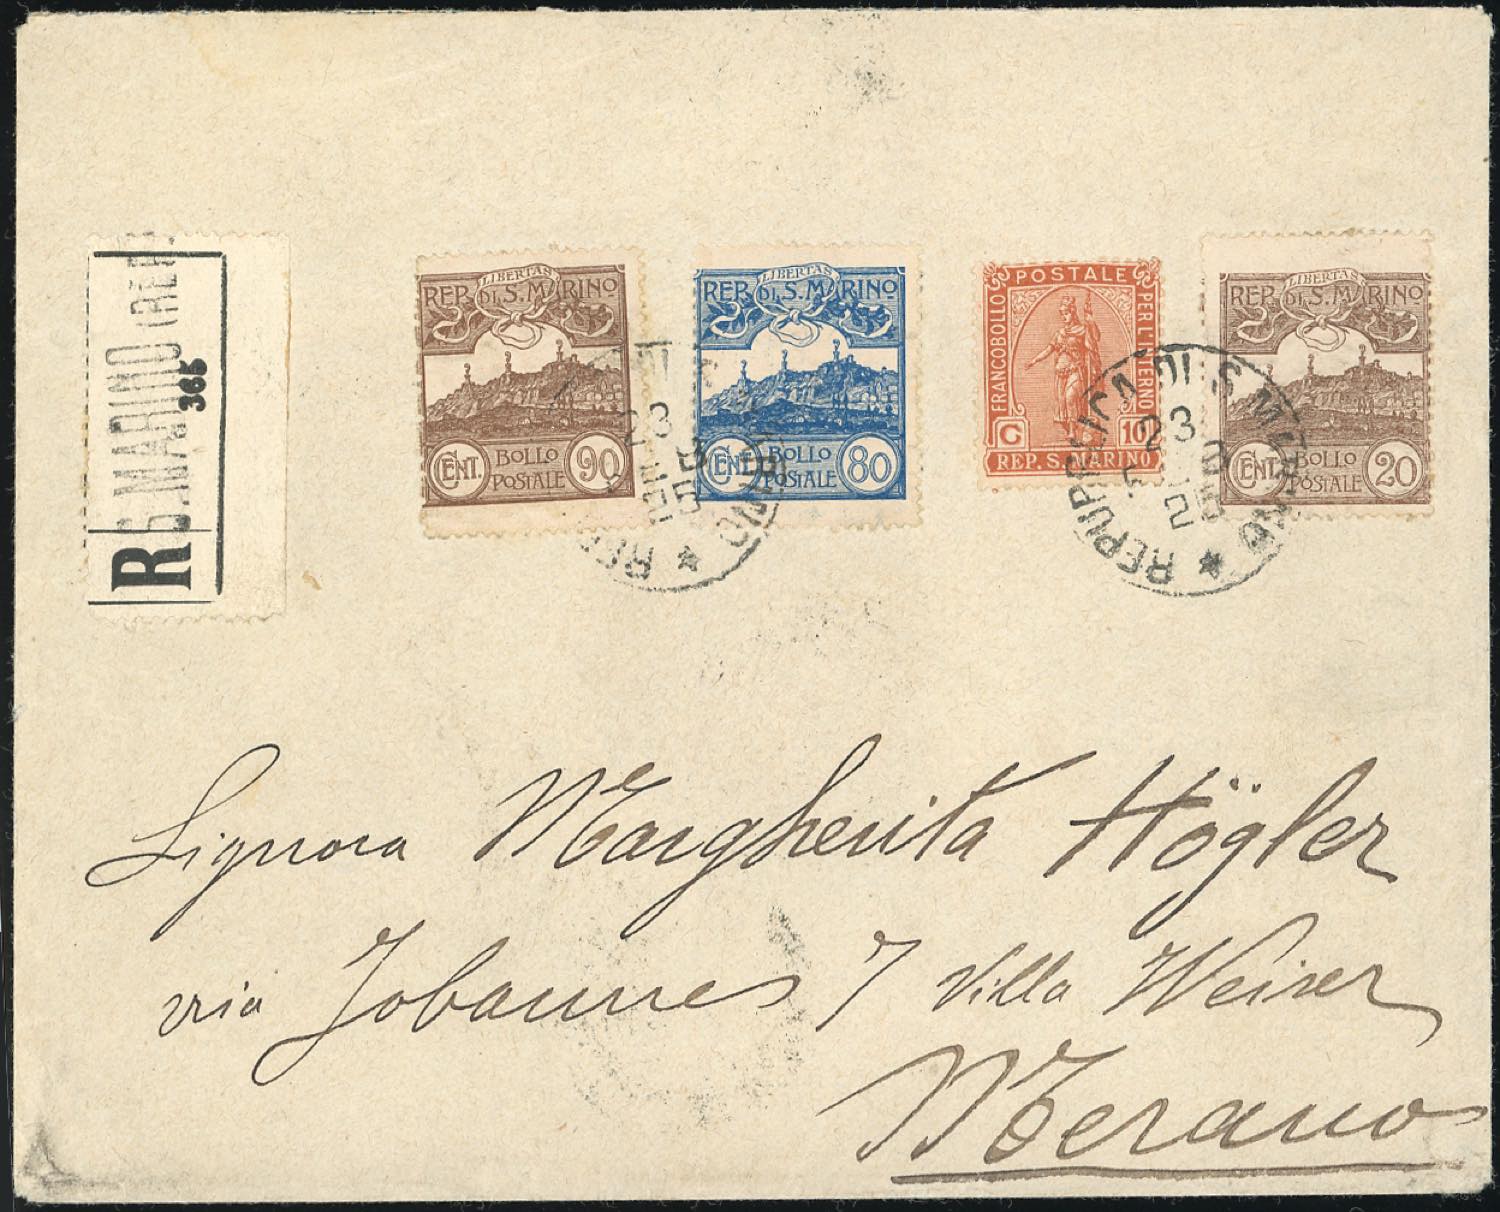 S. MARINO (REP.
365
R
LIBERTAS
REP. DI S. MARINO
CENT. BOLLO POSTALE 90
LIBERTAS
REP. DI S. MARINO
CENT. BOLLO POSTALE 80
POSTALE 10
FRANCOBOLLO
PER L'INTERNO
C 10
REP. S. MARINO
LIBERTAS
REP. DI S. MARINO
CENT. BOLLO POSTALE 20
REPUBBLICA DI S. MARINO
23
Signora Margherita Högler
via Johannes 7 Villa Weiser
Merano